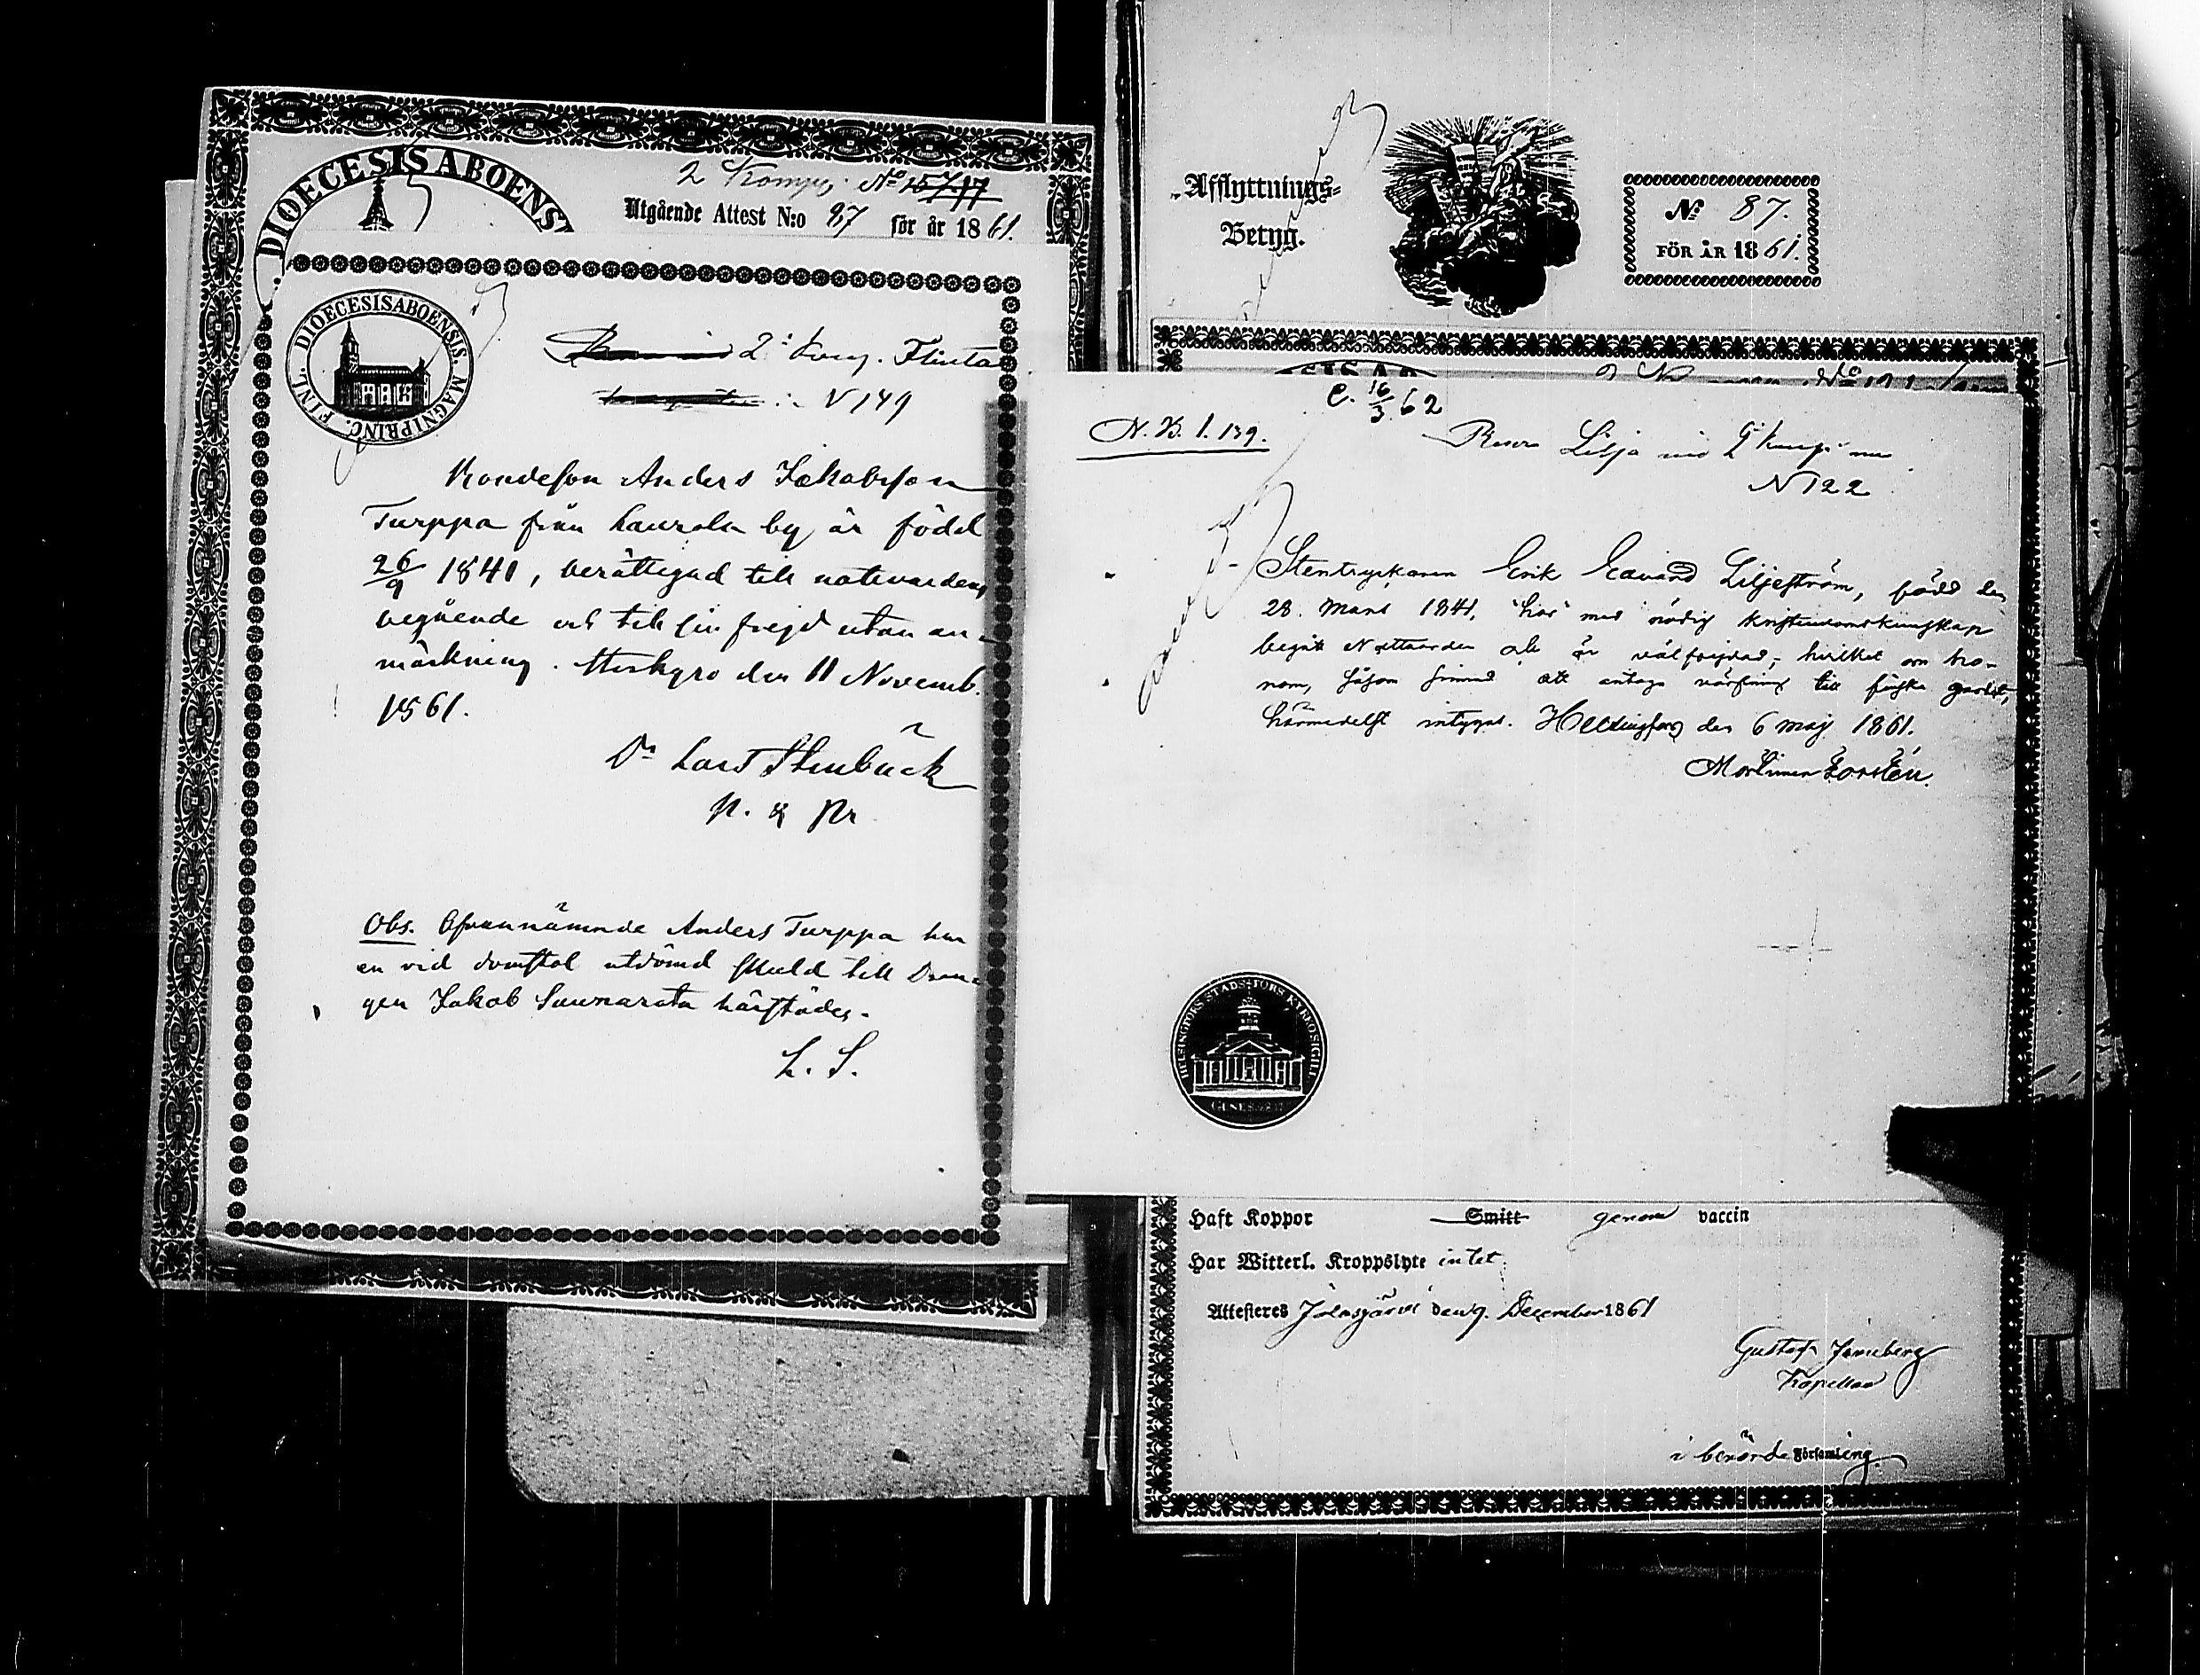 DIOECESIS ABOENS
2 Komp. No 157
Utgående Attest N:o 87 för år 1861.
DIOECESIS ABOENSIS. MAGNI PRINC. FINL.
2 Komp. Flinta
N 149
Bondeson Anders Jakobsson
Turppa från Laurola by är född
26/9 1841, berättigad till nattvardens
begående och till sin frejd utan an-
märkning. Storkyro den 11 Novemb.
1861.
Dr Lars Stenbäck
P. & Pr
Obs. Ofvannämnde Anders Turppa har
en vid domstol utdömd skuld till Drän-
gen Jakob Saunaranta härstädes.
L. S.
Afflyttnings-
Betyg.
No 87.
FÖR ÅR 1861.
e. 16/3 62
N. B. 1. 139.
Lilja vid 2 Komp.
N 122
Stentryckaren Erik Edvard Liljeström, född den
28. Mars 1841, har med nödig kristendomskunskap
begått Nattvarden och är välfrejdad, hvilket om ho-
nom, såsom sinnad att antaga värfning till finska gardet,
härmedelst intygas. Helsingfors den 6 Maj 1861.
Mortimer Forstén.
HELSINGFORS STADS-FÖRS. KYRKOSIGILL
Haft Koppor Smitt genom vaccin
Har Witterl. Kroppslyte intet.
Attesteras Jalasjärvi den 9. December 1861
Gustaf
Kapellan
i berörde Församling.